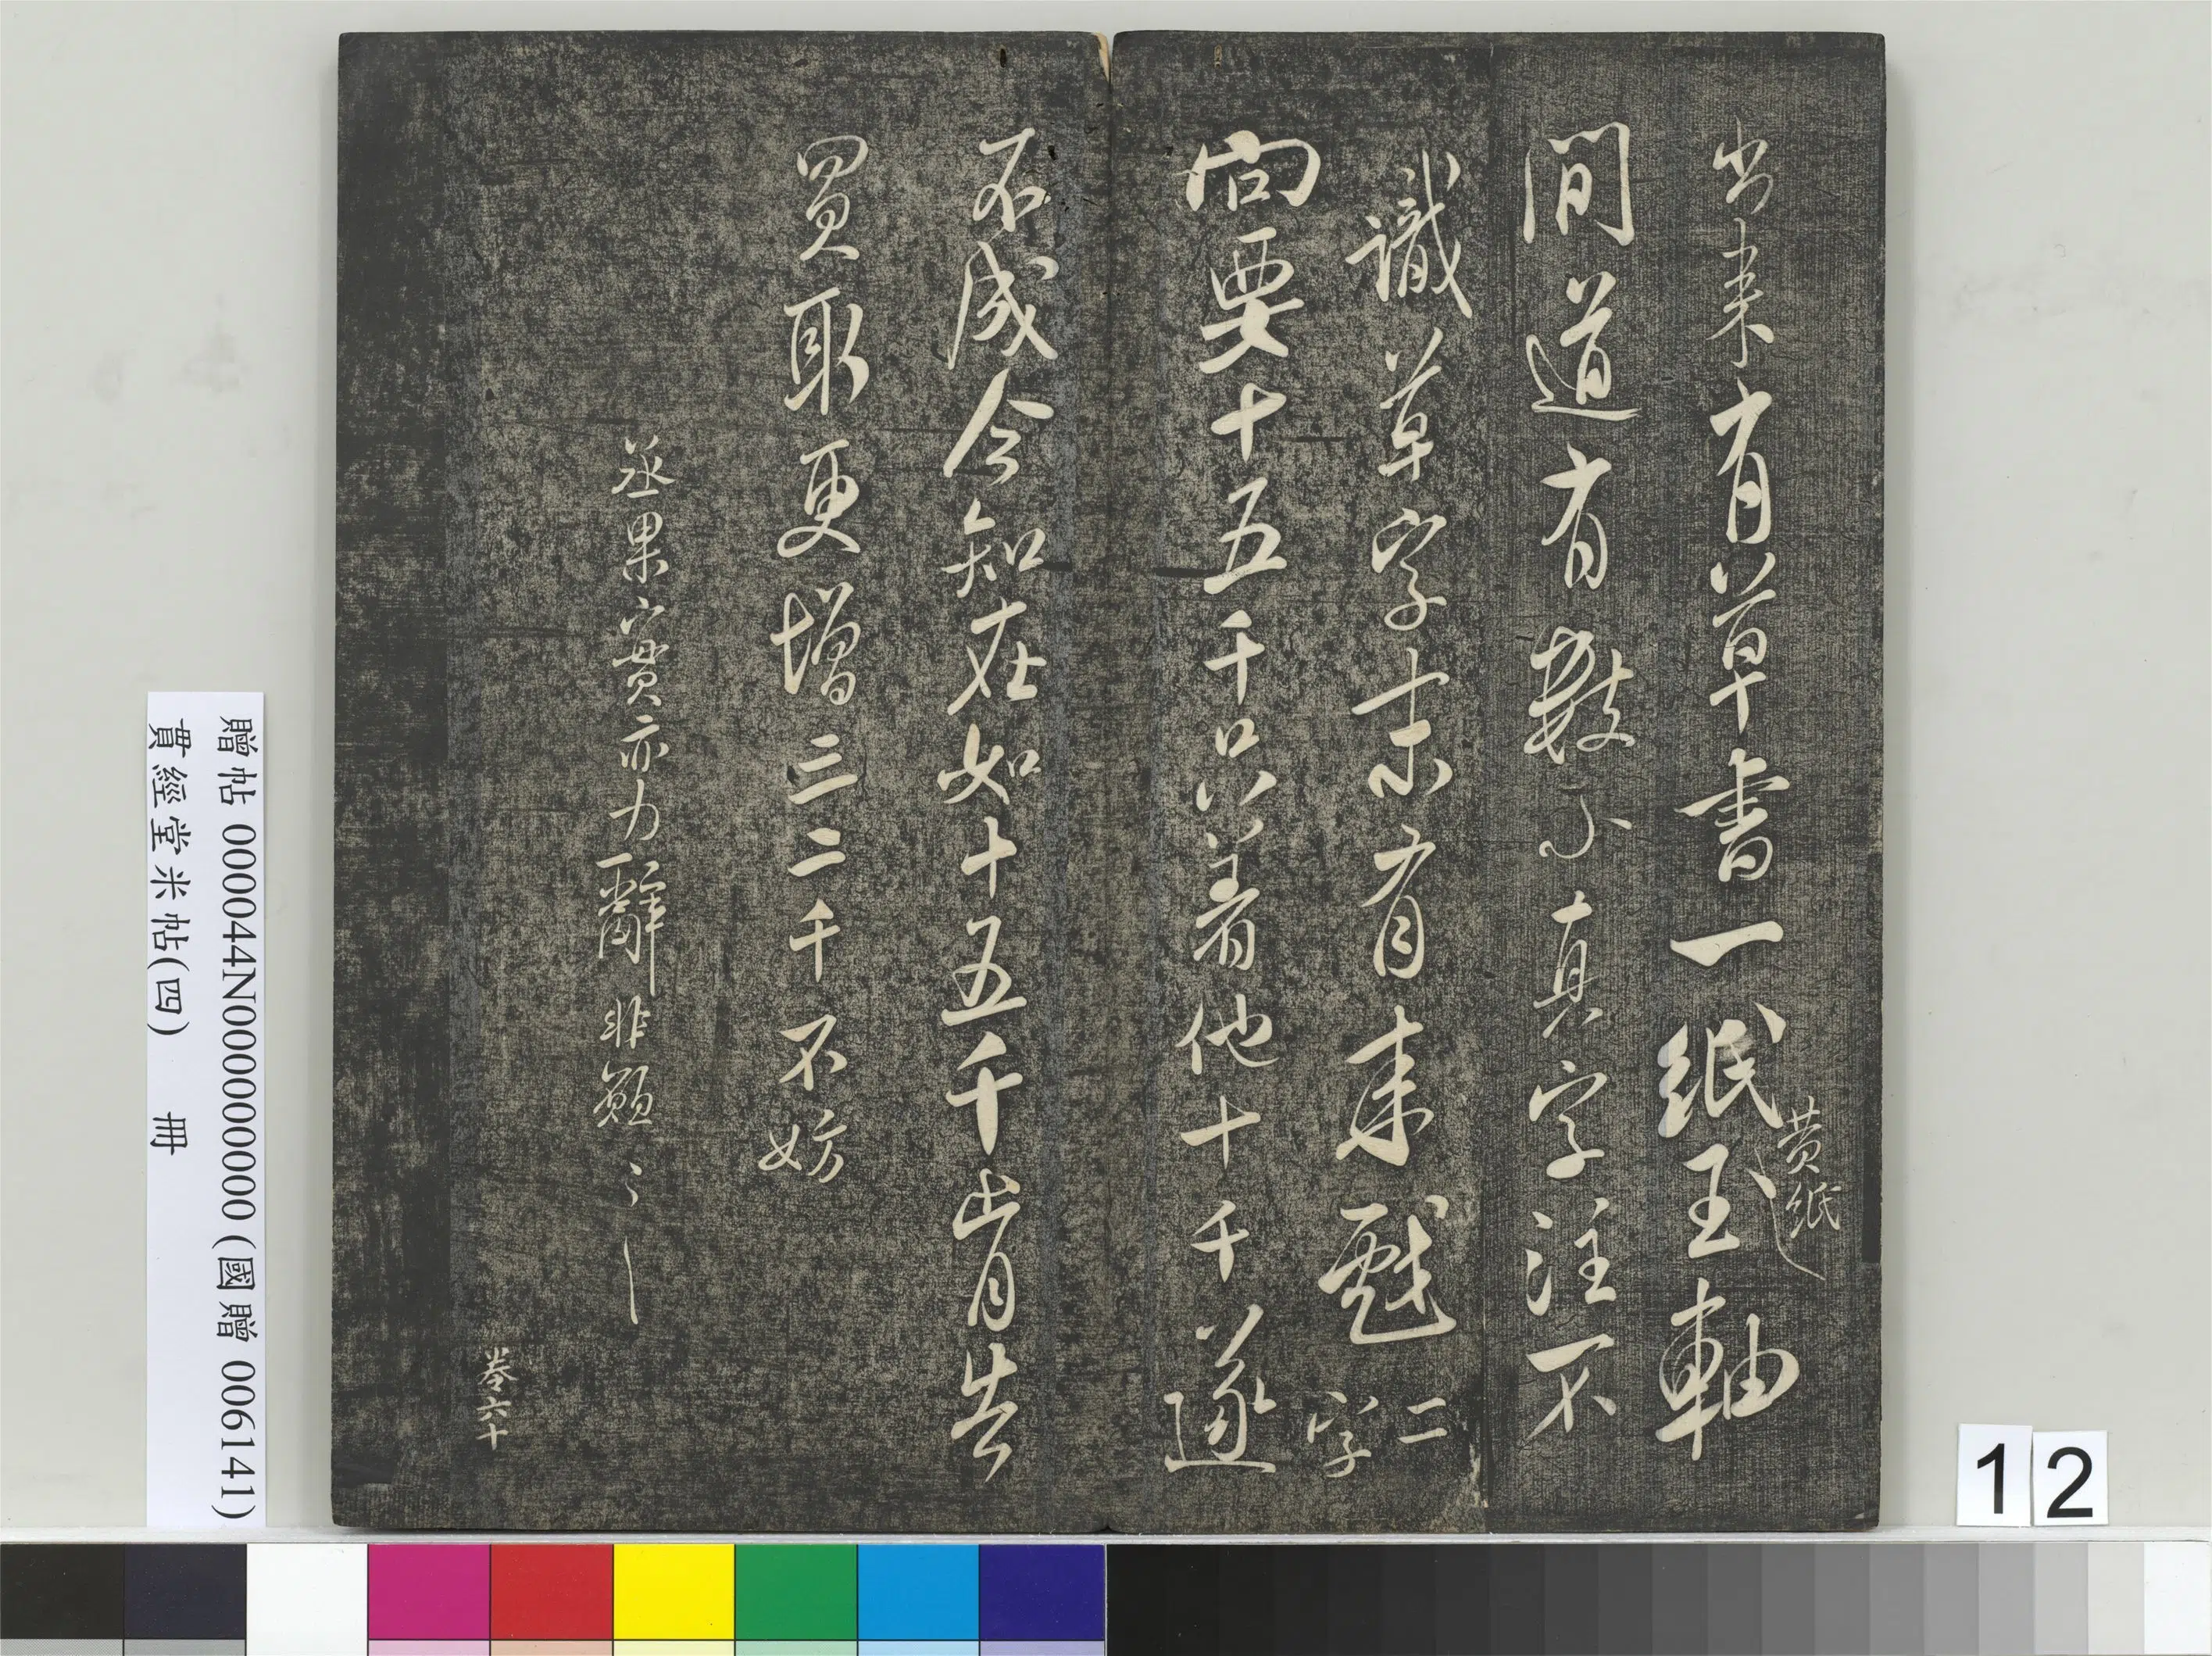 出來有草書一紙玉軸
黃紙
間道有數小真字注不
識草字末有來戲二字
向要十五千只着他十千遂
不成今知在如十五千肯告
買取更增三二千不妨
丞果實亦力辭非願〻
卷六十
贈帖 000044N000000000 (國贈 006141)
貫經堂米帖(四) 冊
12